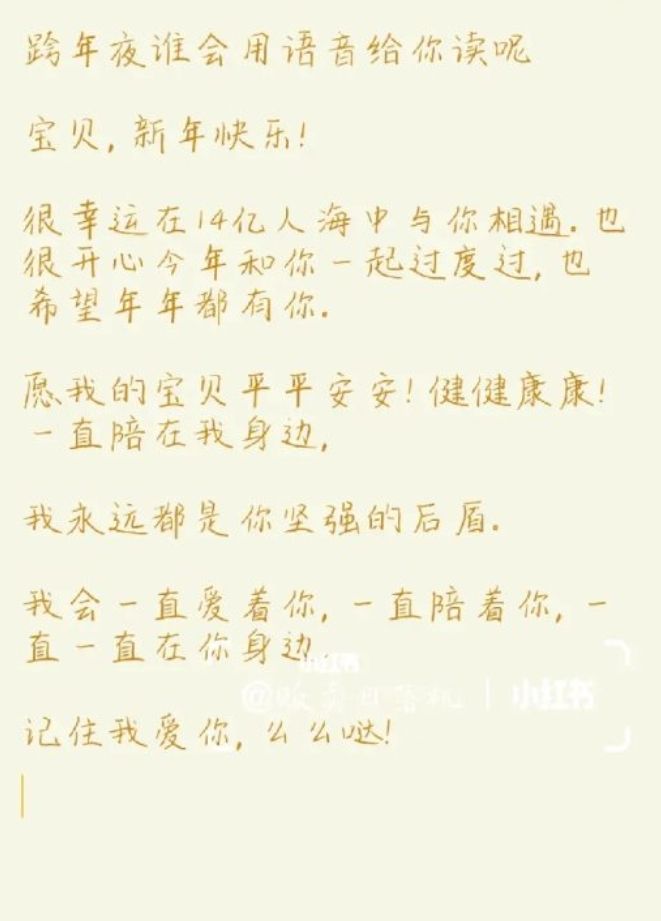 跨年夜谁会用语音给你读呢
宝贝，新年快乐！
很幸运在14亿人海中与你相遇。也
很开心今年和你一起过度过，也
希望年年都有你。
愿我的宝贝平平安安！健健康康！
一直陪在我身边，
我永远都是你坚强的后盾。
我会一直爱着你，一直陪着你，一
直一直在你身边，
小红书
小红书
记住我爱你，么么哒！